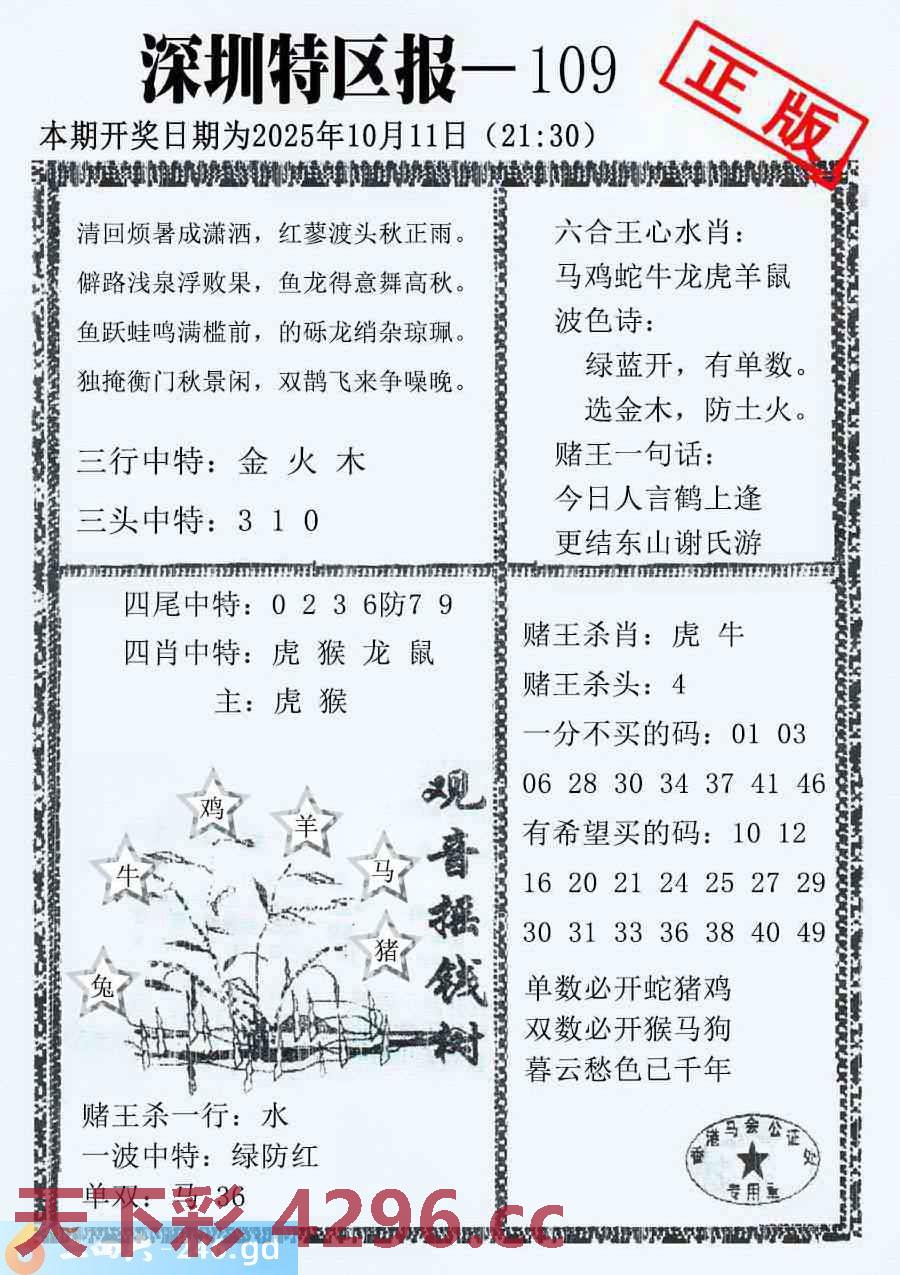 深圳特区报—109
正版
本期开奖日期为2025年10月11日（21:30）
清回烦暑成潇洒，红蓼渡头秋正雨。
僻路浅泉浮败果，鱼龙得意舞高秋。
鱼跃蛙鸣满槛前，的砾龙绡杂琼珮。
独掩衡门秋景闲，双鹊飞来争噪晚。
三行中特：金 火 木
三头中特：3 1 0
六合王心水肖：
马鸡蛇牛龙虎羊鼠
波色诗：
绿蓝开，有单数。
选金木，防土火。
赌王一句话：
今日人言鹤上逢
更结东山谢氏游
四尾中特：0 2 3 6防7 9
四肖中特：虎 猴 龙 鼠
主：虎 猴
鸡
羊
牛
马
猪
兔
观音摇钱树
赌王杀一行：水
一波中特：绿防红
单双：马 36
赌王杀肖：虎 牛
赌王杀头：4
一分不买的码：01 03
06 28 30 34 37 41 46
有希望买的码：10 12
16 20 21 24 25 27 29
30 31 33 36 38 40 49
单数必开蛇猪鸡
双数必开猴马狗
暮云愁色已千年
香港马会公证处
专用章
天下彩 4296.cc